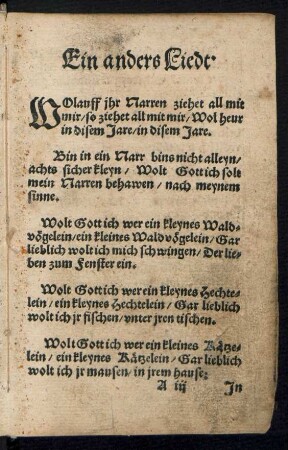 Ein anders Liedt.
WOlauff jhr Narren ziehet all mit
mir/so ziehet all mit mir/Wol heur
in disem Jare/in disem Jare.
Bin in ein Narr bins nicht alleyn/
achts sicher kleyn/ Wolt Gott ich solt
mein Narren behawen/ nach meynem
sinne.
Wolt Gott ich wer ein kleynes Wald-
vögelein/ein kleines Waldvögelein/Gar
lieblich wolt ich mich schwingen/ Der lie-
ben zum Fenster ein.
Wolt Gott ich wer ein kleynes Hechte-
lein/ein kleynes Hechtelein/ Gar lieblich
wolt ich jr fischen/vnter jren tischen.
Wolt Gott ich wer ein kleines Kätze-
lein/ ein kleynes Kätzelein/Gar lieblich
wolt ich jr mausen/in jrem hause:
A iij In